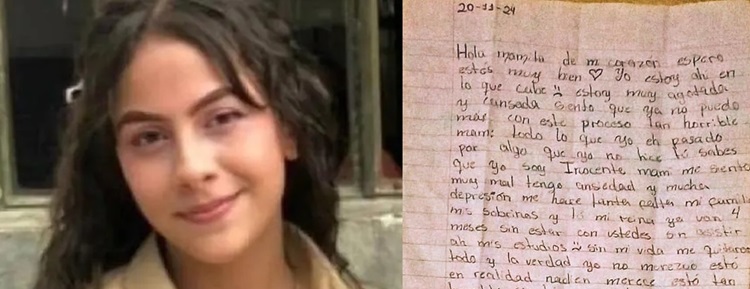 20-11-24
Hola mamita de mi corazón espero
estés muy bien ♡ Yo estoy ahí en
lo que cabe estoy muy agotada
y cansada siento que ya no puedo
más con este proceso tan horrible
mami todo lo que yo eh pasado
por algo que yo no hice tú sabes
que yo soy Inocente mami me siento
muy mal tengo ansiedad y mucha
depresión me hace tanta falta mi familia
mis sobrinas y mi reina ya van 4
meses sin estar con ustedes sin asistir
ah mis estudios sin mi vida me quitaron
todo y la verdad yo no merezco esto
en realidad nadien merece esto tan